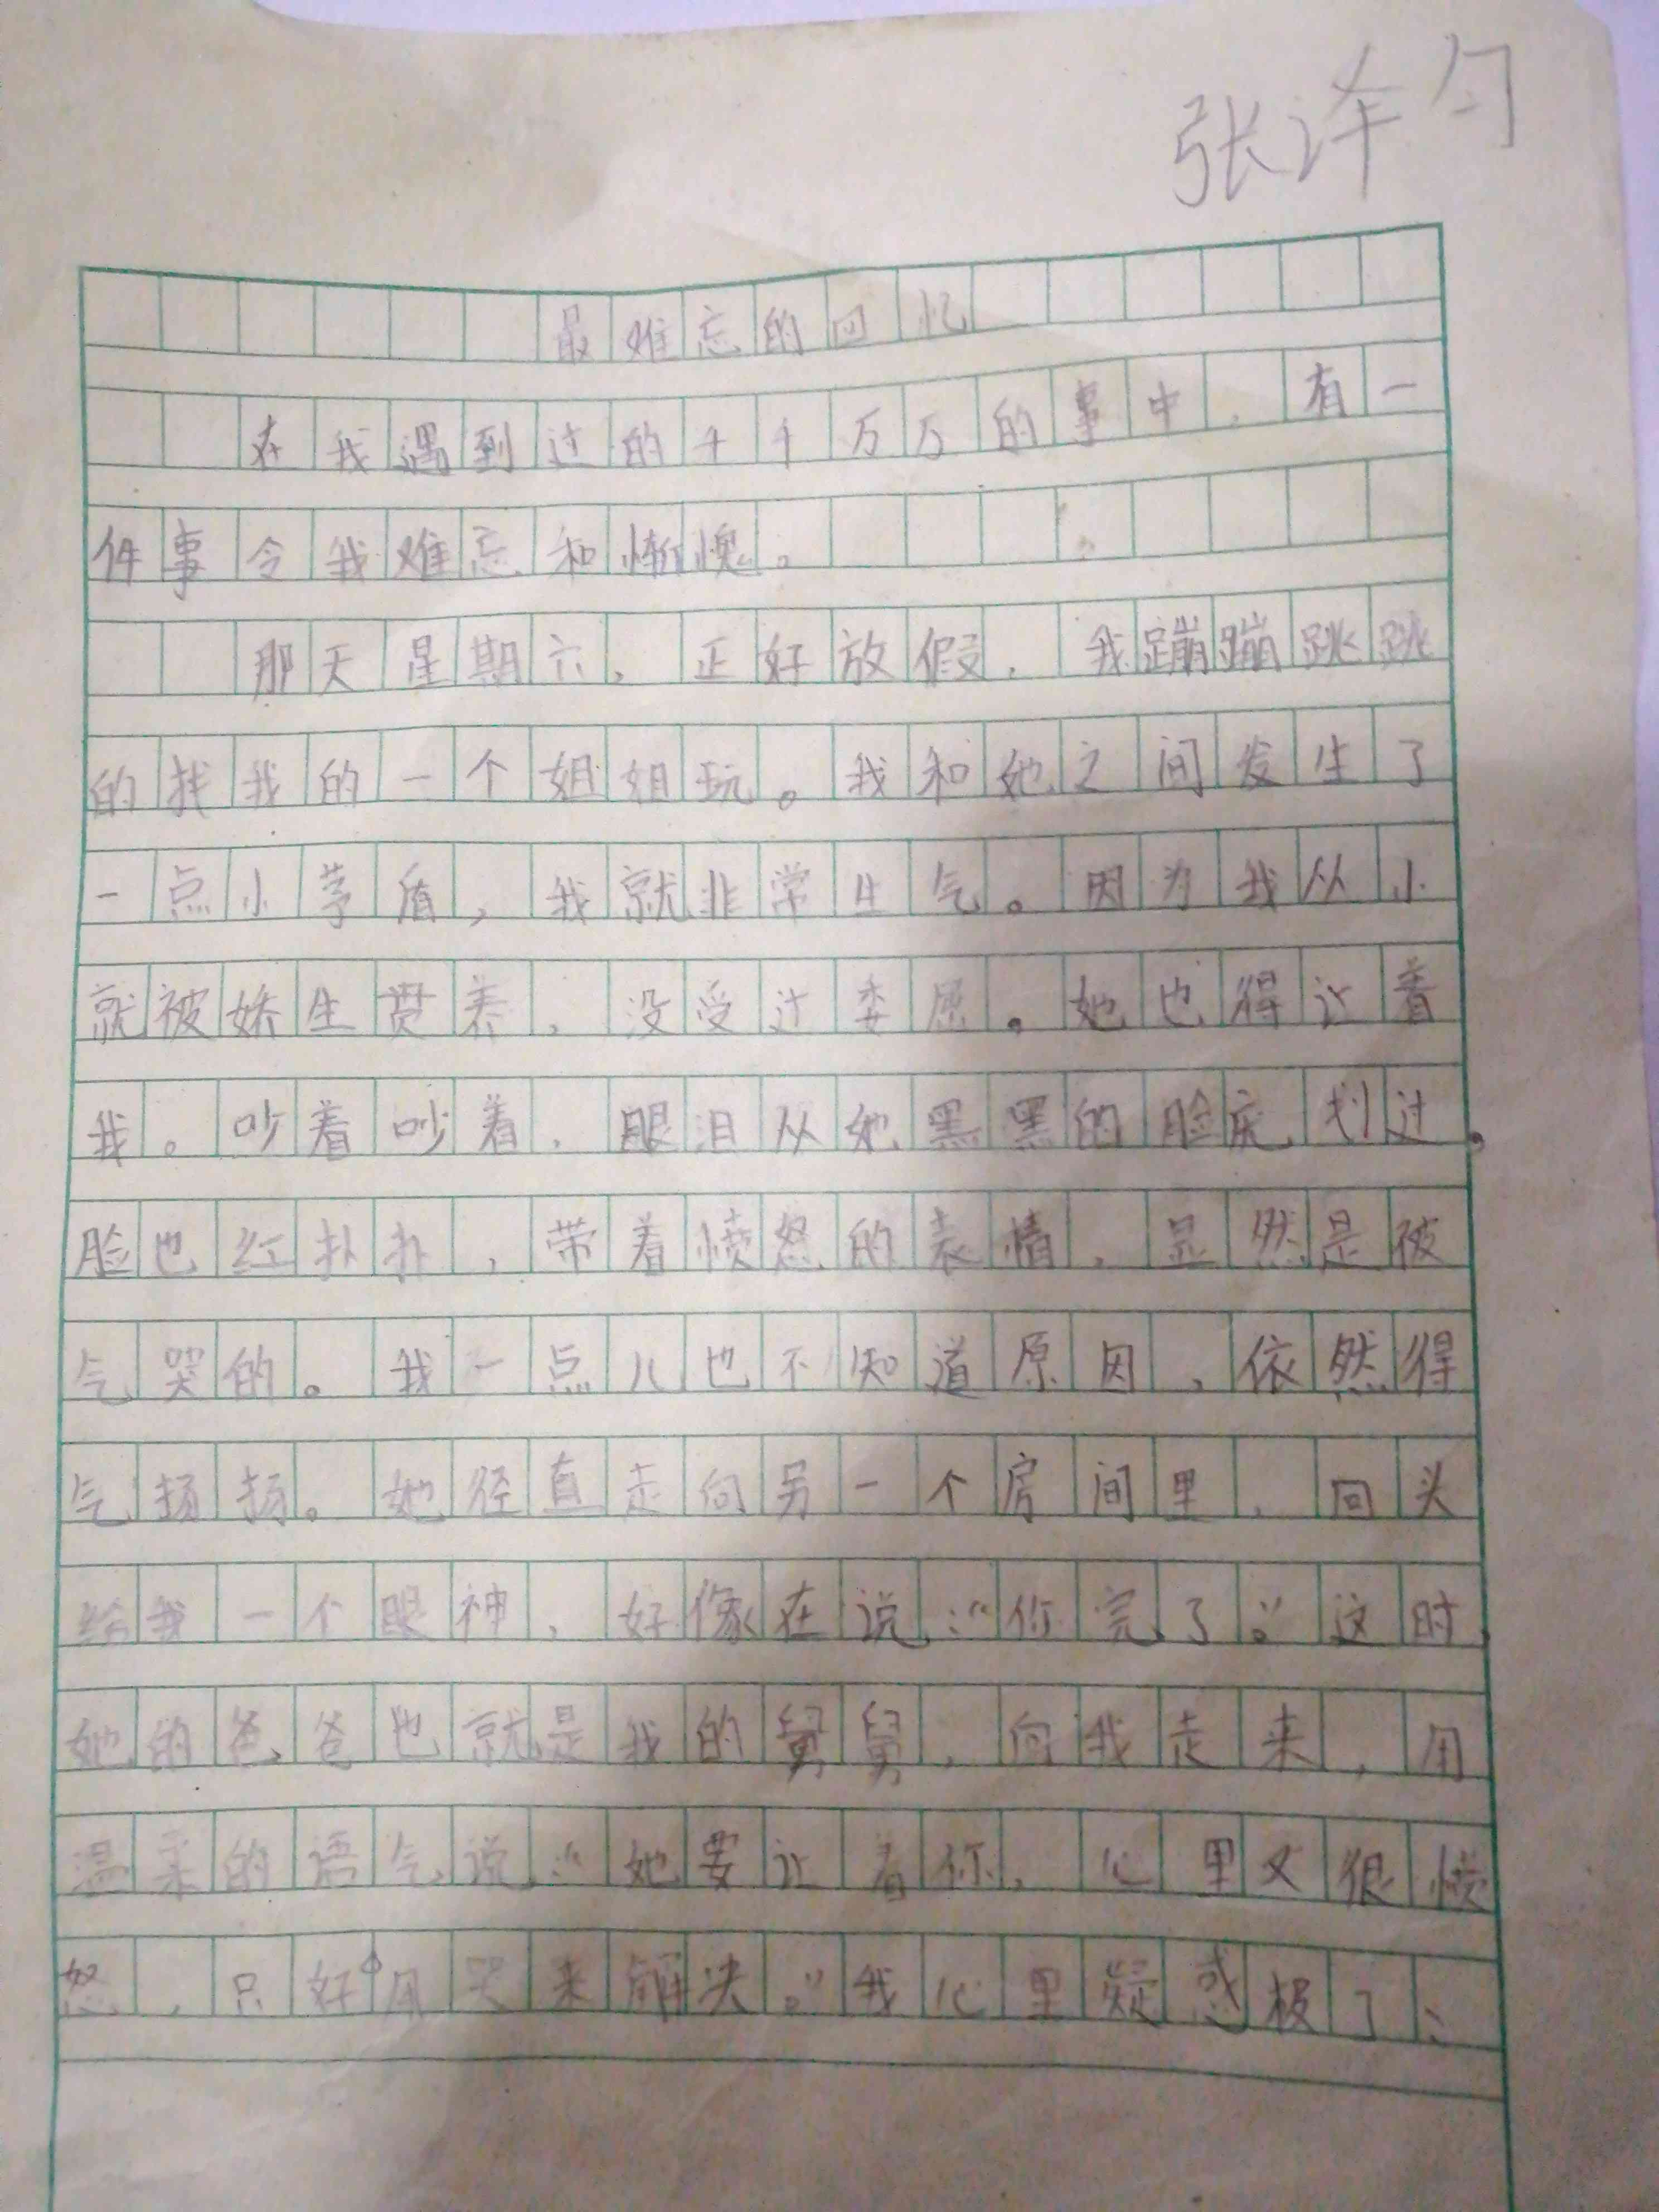 张泽匀
最难忘的回忆
在我遇到过的千千万万的事中，有一
件事令我难忘和惭愧。
那天星期六，正好放假，我蹦蹦跳跳
的找我的一个姐姐玩。我和她之间发生了
一点小茅盾，我就非常生气。因为我从小
就被娇生贯养，没受过委屈。她也得让着
我。吵着吵着，眼泪从她黑黑的脸庞划过。
脸也红扑扑，带着愤怒的表情，显然是被
气哭的。我一点儿也不知道原因，依然得
气扬扬。她径直走向另一个房间里，回头
给我一个眼神，好像在说：“你完了。”这时
她的爸爸也就是我的舅舅，向我走来，用
温柔的语气说：“她要让着你，心里又很愤
怒，只好用哭来解决。”我心里疑惑极了、